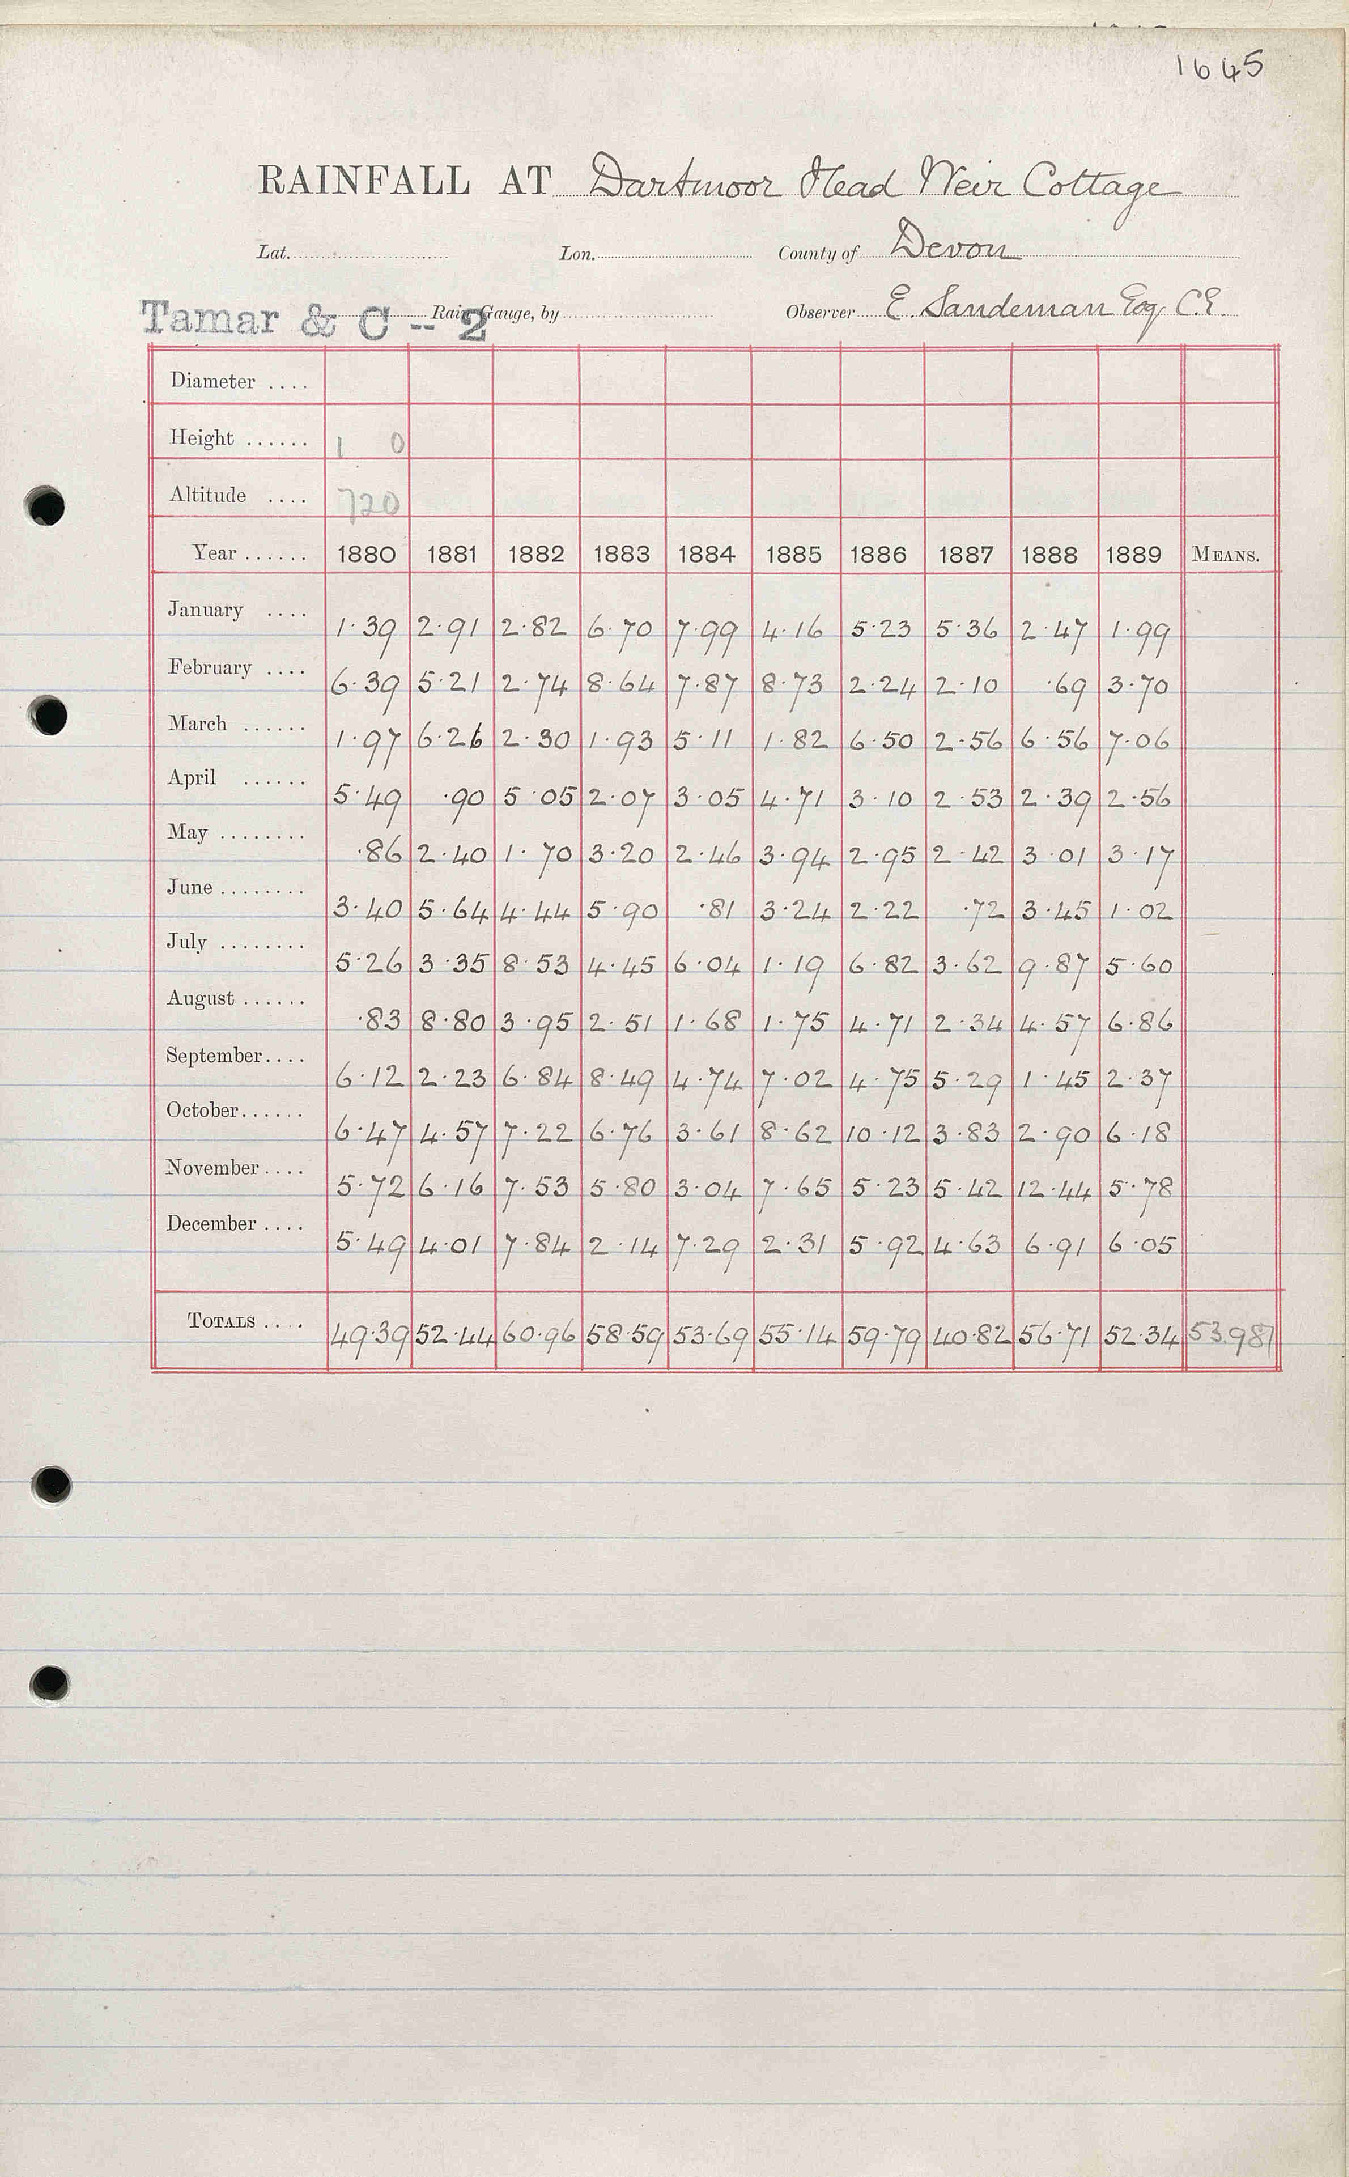 1645
RAINFALL AT Dartmoor Head Weir Cottage
Lat. Lon. County of Devon
Tamar & C -- 2 Rain Gauge, by Observer E. Sandeman Esq. C.E.
Diameter ....
Height ...... 1 0
Altitude .... 720
Year ...... 1880 1881 1882 1883 1884 1885 1886 1887 1888 1889 MEANS.
January .... 1.39 2.91 2.82 6.70 7.99 4.16 5.23 5.36 2.47 1.99
February .... 6.39 5.21 2.74 8.64 7.87 8.73 2.24 2.10 .69 3.70
March ...... 1.97 6.26 2.30 1.93 5.11 1.82 6.50 2.56 6.56 7.06
April ...... 5.49 .90 5.05 2.07 3.05 4.71 3.10 2.53 2.39 2.56
May ........ .86 2.40 1.70 3.20 2.46 3.94 2.95 2.42 3.01 3.17
June ........ 3.40 5.64 4.44 5.90 .81 3.24 2.22 .72 3.45 1.02
July ........ 5.26 3.35 8.53 4.45 6.04 1.19 6.82 3.62 9.87 5.60
August ...... .83 8.80 3.95 2.51 1.68 1.75 4.71 2.34 4.57 6.86
September.... 6.12 2.23 6.84 8.49 4.74 7.02 4.75 5.29 1.45 2.37
October...... 6.47 4.57 7.22 6.76 3.61 8.62 10.12 3.83 2.90 6.18
November.... 5.72 6.16 7.53 5.80 3.04 7.65 5.23 5.42 12.44 5.78
December .... 5.49 4.01 7.84 2.14 7.29 2.31 5.92 4.63 6.91 6.05
TOTALS .... 49.39 52.44 60.96 58.59 53.69 55.14 59.79 40.82 56.71 52.34 53.987